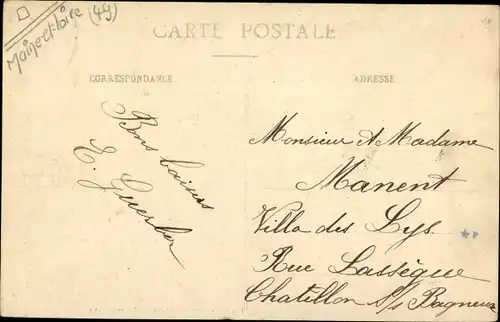 Maine-et-Loire (49)
CARTE POSTALE
CORRESPONDANCE
ADRESSE
Bons baisers
E. Guerber
Monsieur et Madame
Manent
Villa des Lys
Rue Lassègue
Chatillon s/s Bagneux